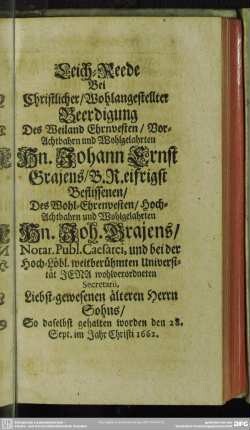 Leich-Reede
Bei
Christlicher/Wohlangestellter
Beerdigung
Des Weiland Ehrnvesten/ Vor-
Achtbahrn und Wohlgelahrten
Hn. Johann Ernst
Grajens/B.R.eifrigst
Beflissenen/
Des Wohl-Ehrenvesten/ Hoch-
Achtbahrn und Wohlgelahrten
Hn. Joh. Grajens/
Notar. Publ. Caesarei, und bei der
Hoch-Löbl. weitberühmten Universi-
tät JENA wohlverordneten
Secretarii,
Liebst-gewesenen älteren Herrn
Sohns/
So daselbst gehalten worden den 28.
Sept. im Jahr Christi 1662.